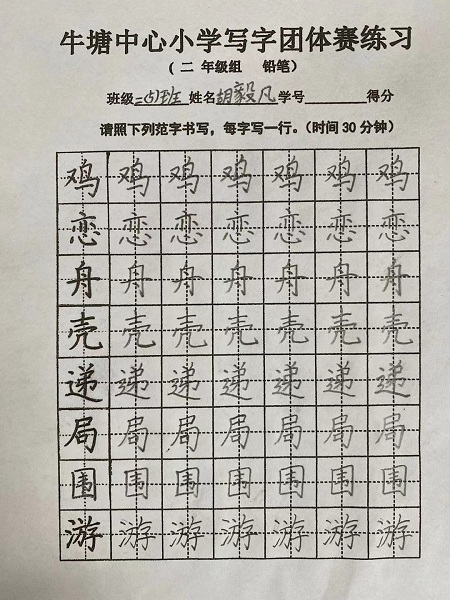 牛塘中心小学写字团体赛练习
(二 年级组 铅笔)
班级二(5)班 姓名胡毅凡 学号________得分
请照下列范字书写，每字写一行。(时间30分钟)
鸡 鸡 鸡 鸡 鸡 鸡 鸡
恋 恋 恋 恋 恋 恋 恋
舟 舟 舟 舟 舟 舟 舟
壳 壳 壳 壳 壳 壳 壳
递 递 递 递 递 递 递
局 局 局 局 局 局 局
围 围 围 围 围 围 围
游 游 游 游 游 游 游